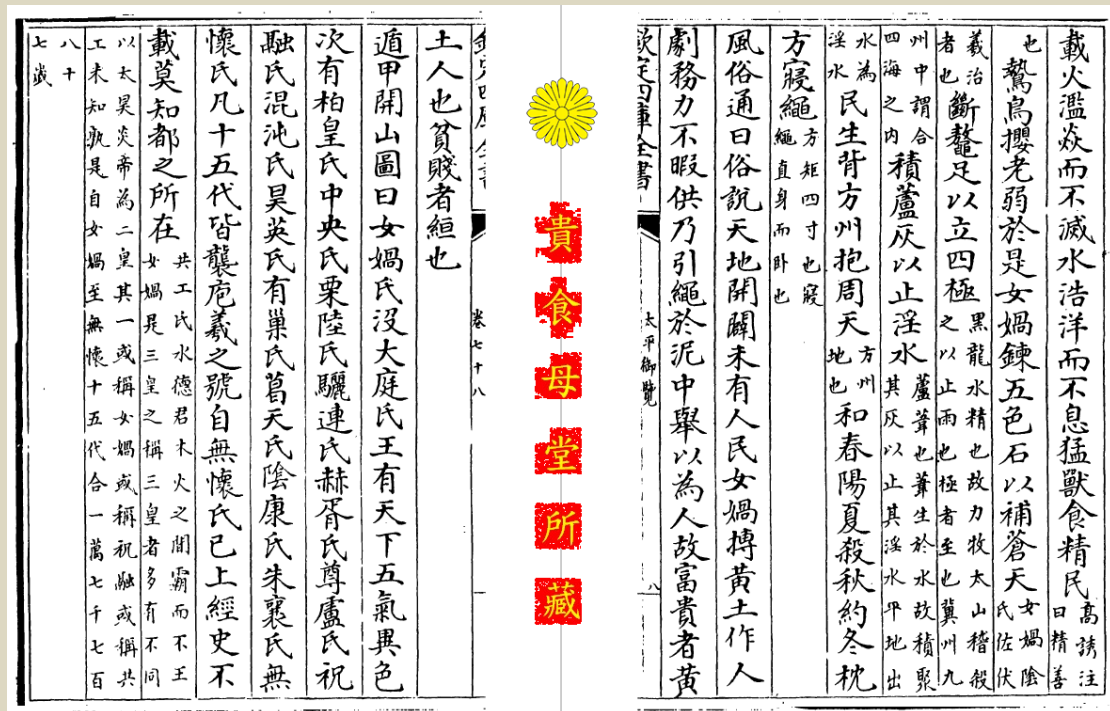 載火濫焱而不滅水浩洋而不息猛獸食精民高誘注曰精善
也鷙鳥攖老弱於是女媧鍊五色石以補蒼天女媧陰氏佐伏
羲治者也斷鼇足以立四極黑龍水精也故力牧太山稽殺之以止雨也極者至也冀州九
州中謂合四海之内積蘆灰以止淫水蘆葦也葦生於水故積聚其灰以止其淫水平地出
水為淫水民生背方州抱周天方州地也和春陽夏殺秋約冬枕
方寢繩方矩四寸也寢繩直身而卧也
風俗通曰俗說天地開闢未有人民女媧摶黄土作人
劇務力不暇供乃引繩於泥中舉以為人故富貴者黄
欽定四庫全書
太平御覽
八
貴食母堂所藏
欽定四庫全書
卷七十八
土人也貧賤者絙也
遁甲開山圖曰女媧氏沒大庭氏王有天下五氣異色
次有柏皇氏中央氏栗陸氏驪連氏赫胥氏尊盧氏祝
融氏混沌氏昊英氏有巢氏葛天氏陰康氏朱襄氏無
懷氏凡十五代皆襲庖羲之號自無懷氏已上經史不
載莫知都之所在共工氏水德君木火之間霸而不王女媧晃三皇之稱三皇者多有不同
以太昊炎帝為二皇其一或稱女媧或稱祝融或稱共工未知孰是自女媧至無懷十五代合一萬七千七百
八十七歲